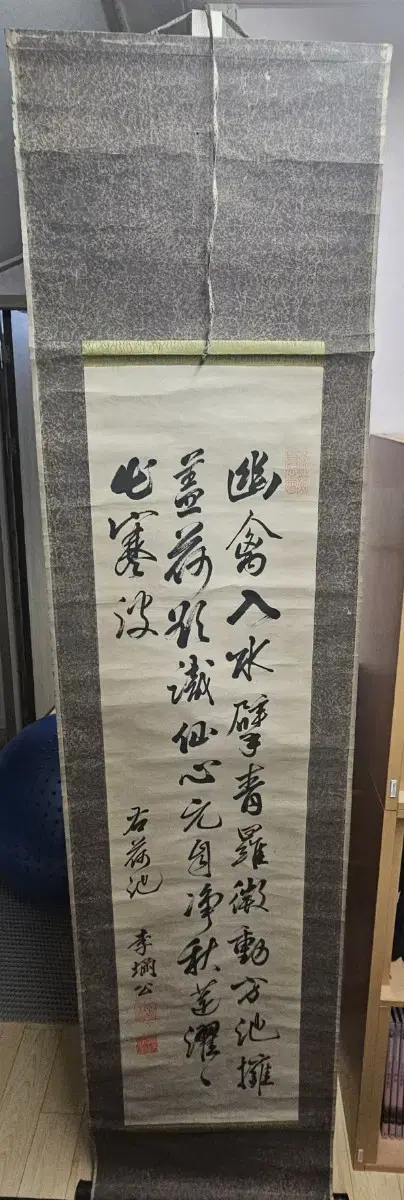 幽禽入水擘青羅微動方池擁
盖荷欲識仙心元自净秋蓮濯〻
出寒波
右荷池
李堈公